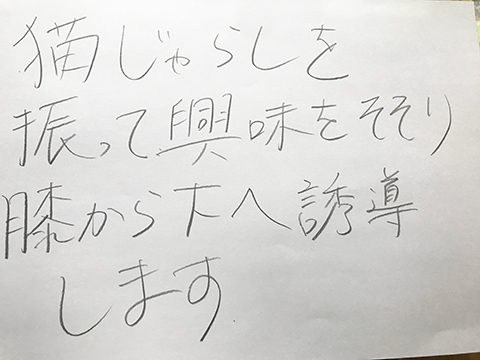 猫じゃらしを
振って興味をそそり
膝から下へ誘導
します